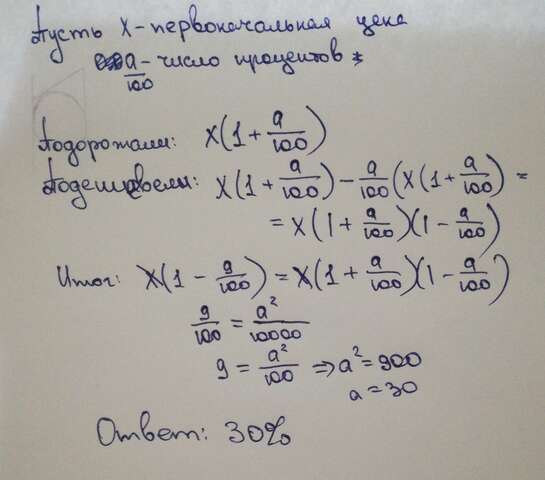 Пусть x - первоначальная цена
a/100 - число процентов
Подорожали: x(1 + a/100)
Подешевели: x(1 + a/100) - a/100 (x(1 + a/100) =
= x(1 + a/100)(1 - a/100)
Итог: x(1 - 9/100) = x(1 + a/100)(1 - a/100)
9/100 = a²/10000
9 = a²/100 => a² = 900
a = 30
Ответ: 30%